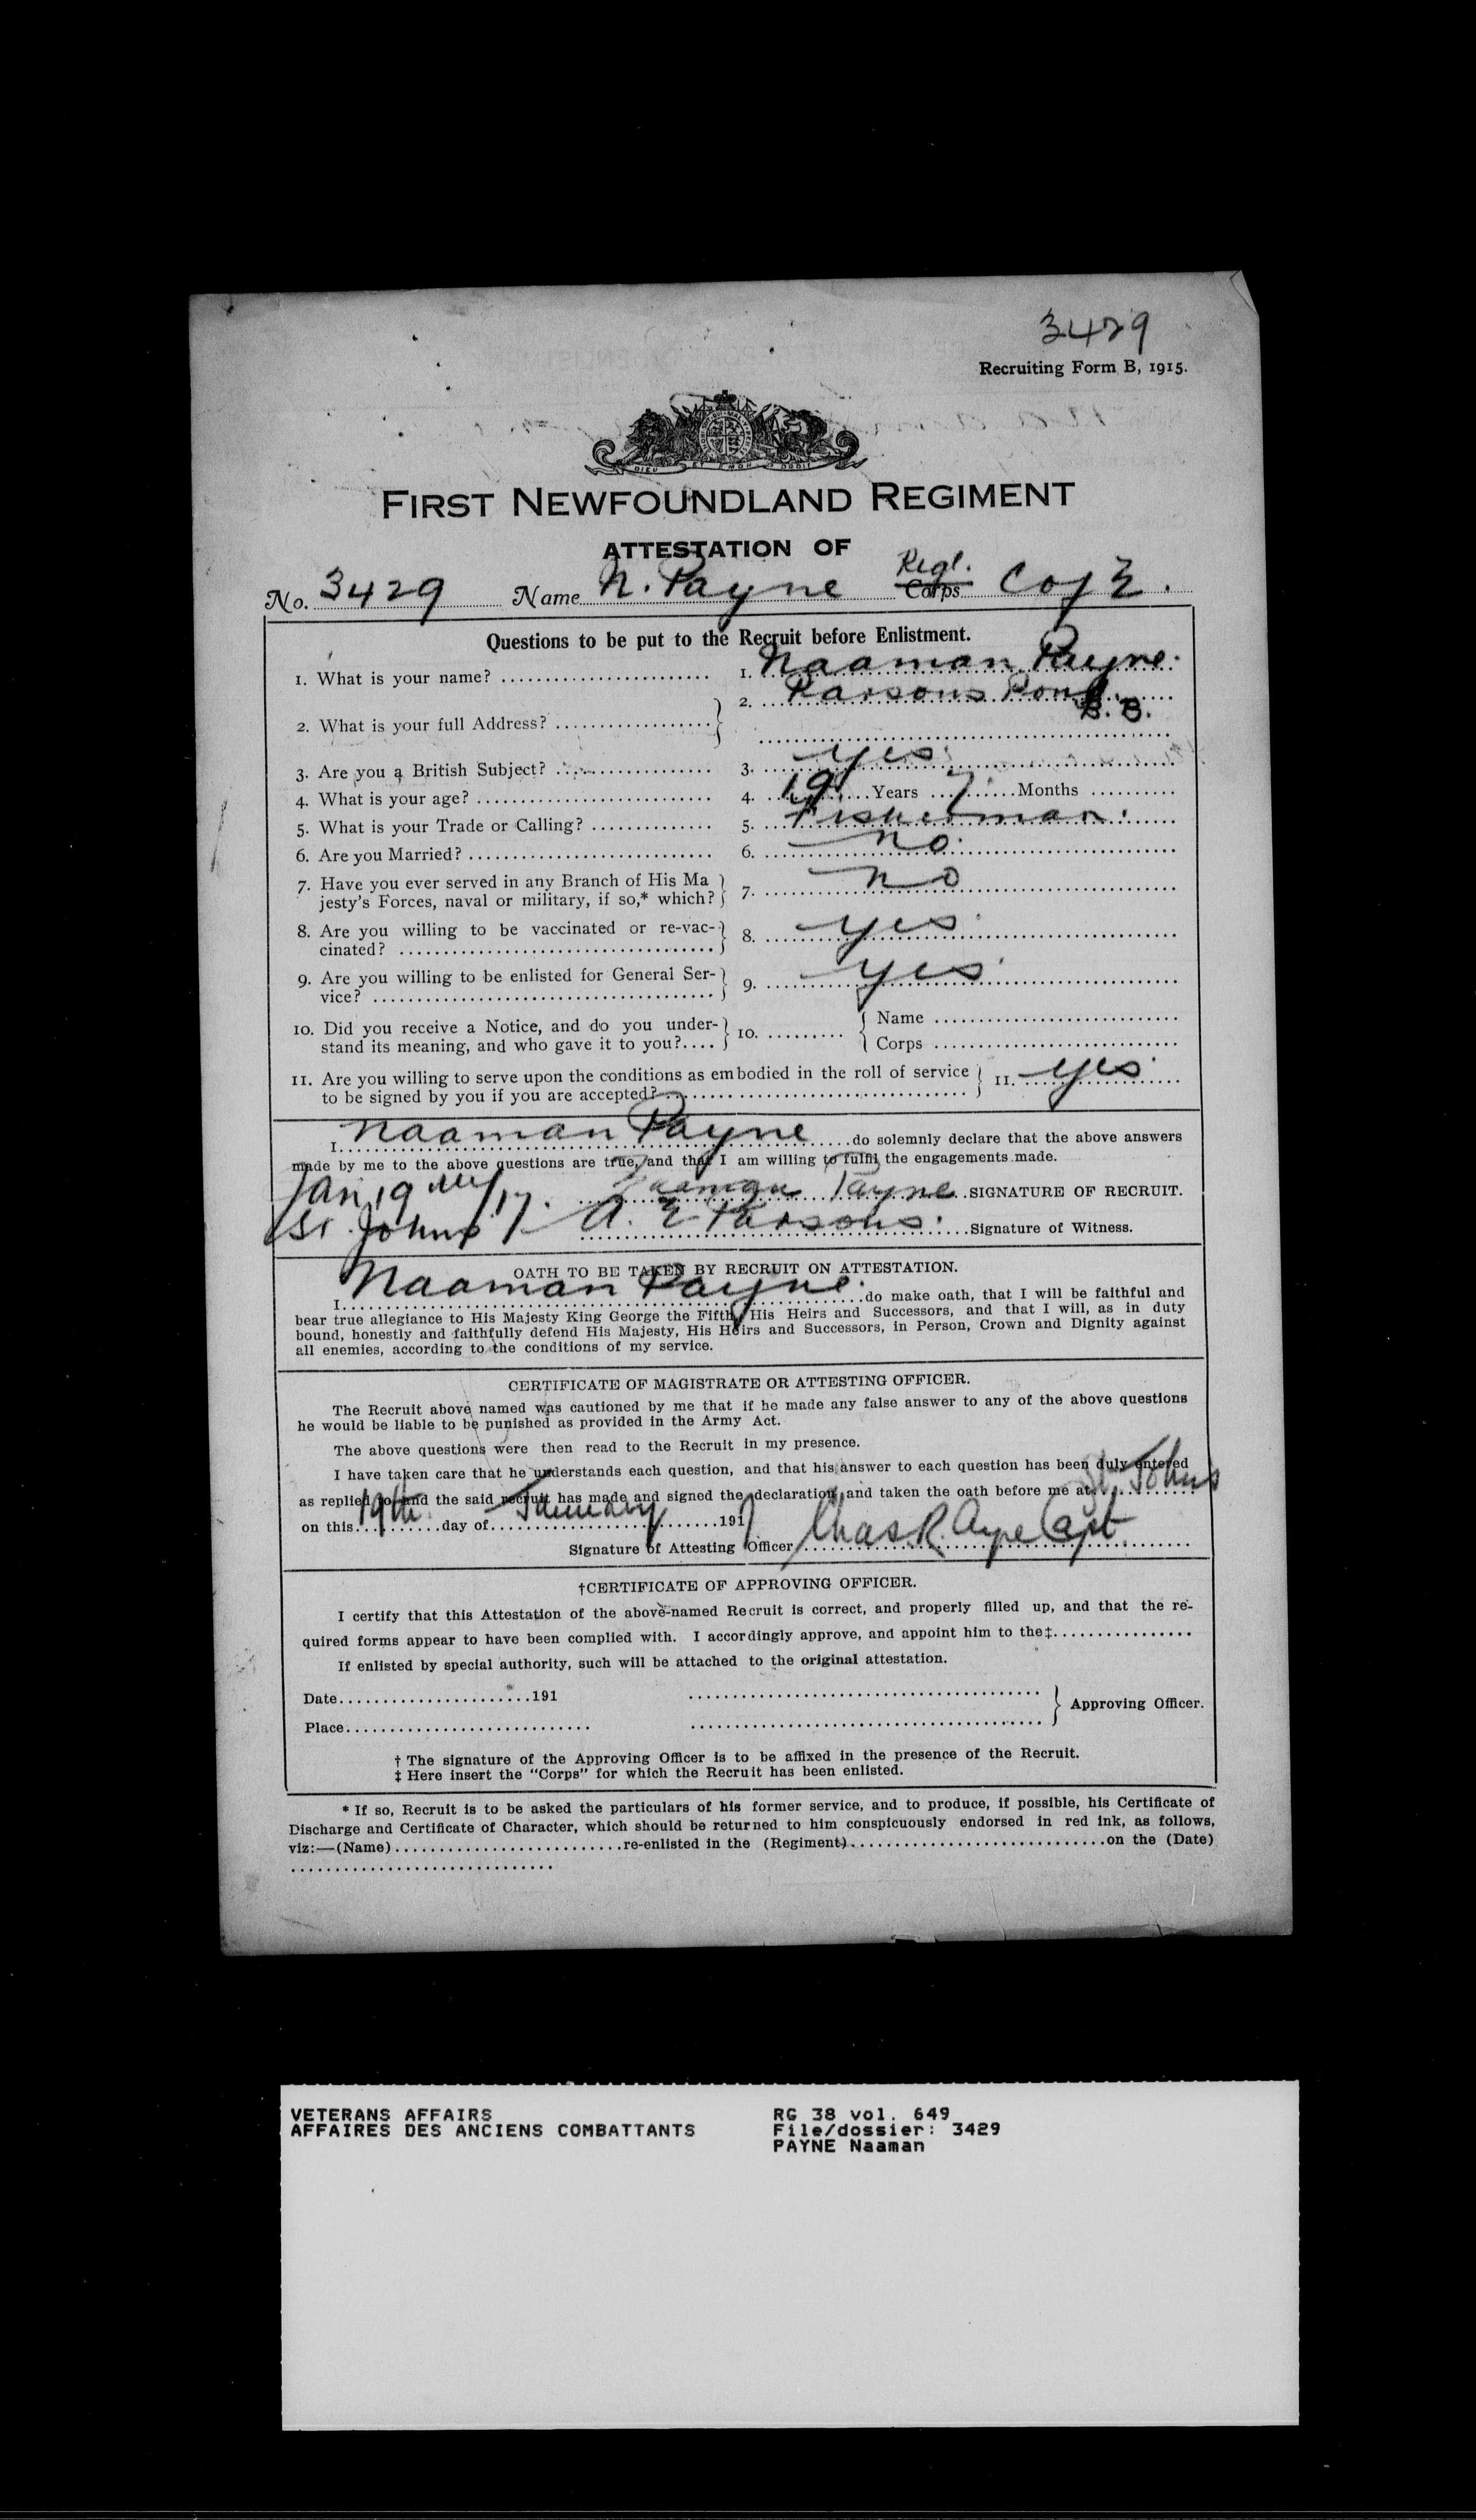 3429
Recruiting Form B, 1915.
DIEU ET MON DROIT
FIRST NEWFOUNDLAND REGIMENT
ATTESTATION OF
No. 3429 Name N. Payne Regl. Corps Coy E.
Questions to be put to the Recruit before Enlistment.
1. What is your name? 1. Naaman Payne.
2. What is your full Address? 2. Parsons Pond.
B. B.
3. Are you a British Subject? 3. Yes.
4. What is your age? 4. 19 Years 7 Months
5. What is your Trade or Calling? 5. Fisherman.
6. Are you Married? 6. No.
7. Have you ever served in any Branch of His Ma
jesty's Forces, naval or military, if so,* which? 7. No
8. Are you willing to be vaccinated or re-vac-
cinated? 8. Yes.
9. Are you willing to be enlisted for General Ser-
vice? 9. Yes.
10. Did you receive a Notice, and do you under-
stand its meaning, and who gave it to you? 10. Name
Corps
11. Are you willing to serve upon the conditions as embodied in the roll of service
to be signed by you if you are accepted? 11. Yes.
I Naaman Payne do solemnly declare that the above answers
made by me to the above questions are true, and that I am willing to fulfil the engagements made.
Jan 19th/17. Naaman Payne SIGNATURE OF RECRUIT.
St. Johns A. E. Parsons. Signature of Witness.
OATH TO BE TAKEN BY RECRUIT ON ATTESTATION.
I Naaman Payne. do make oath, that I will be faithful and
bear true allegiance to His Majesty King George the Fifth, His Heirs and Successors, and that I will, as in duty
bound, honestly and faithfully defend His Majesty, His Heirs and Successors, in Person, Crown and Dignity against
all enemies, according to the conditions of my service.
CERTIFICATE OF MAGISTRATE OR ATTESTING OFFICER.
The Recruit above named was cautioned by me that if he made any false answer to any of the above questions
he would be liable to be punished as provided in the Army Act.
The above questions were then read to the Recruit in my presence.
I have taken care that he understands each question, and that his answer to each question has been duly entered
as replied to, and the said recruit has made and signed the declaration, and taken the oath before me at St. Johns
on this 19th day of January 1917
Signature of Attesting Officer Chas R. Ayre Capt.
†CERTIFICATE OF APPROVING OFFICER.
I certify that this Attestation of the above-named Recruit is correct, and properly filled up, and that the re-
quired forms appear to have been complied with. I accordingly approve, and appoint him to the‡
If enlisted by special authority, such will be attached to the original attestation.
Date 191
Approving Officer.
Place
† The signature of the Approving Officer is to be affixed in the presence of the Recruit.
‡ Here insert the "Corps" for which the Recruit has been enlisted.
* If so, Recruit is to be asked the particulars of his former service, and to produce, if possible, his Certificate of
Discharge and Certificate of Character, which should be returned to him conspicuously endorsed in red ink, as follows,
viz:—(Name) re-enlisted in the (Regiment) on the (Date)
VETERANS AFFAIRS RG 38 vol. 649
AFFAIRES DES ANCIENS COMBATTANTS File/dossier: 3429
PAYNE Naaman